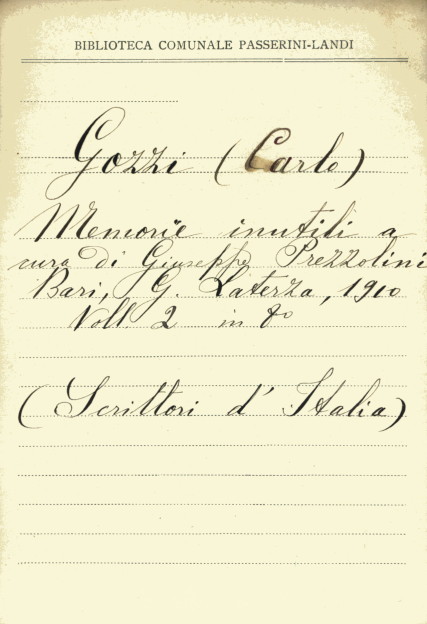 BIBLIOTECA COMUNALE PASSERINI-LANDI
Gozzi (Carlo)
Memorie inutili a
cura di Giuseppe Prezzolini
Bari, G. Laterza, 1910
Voll 2 in 8°
(Scrittori d' Italia)